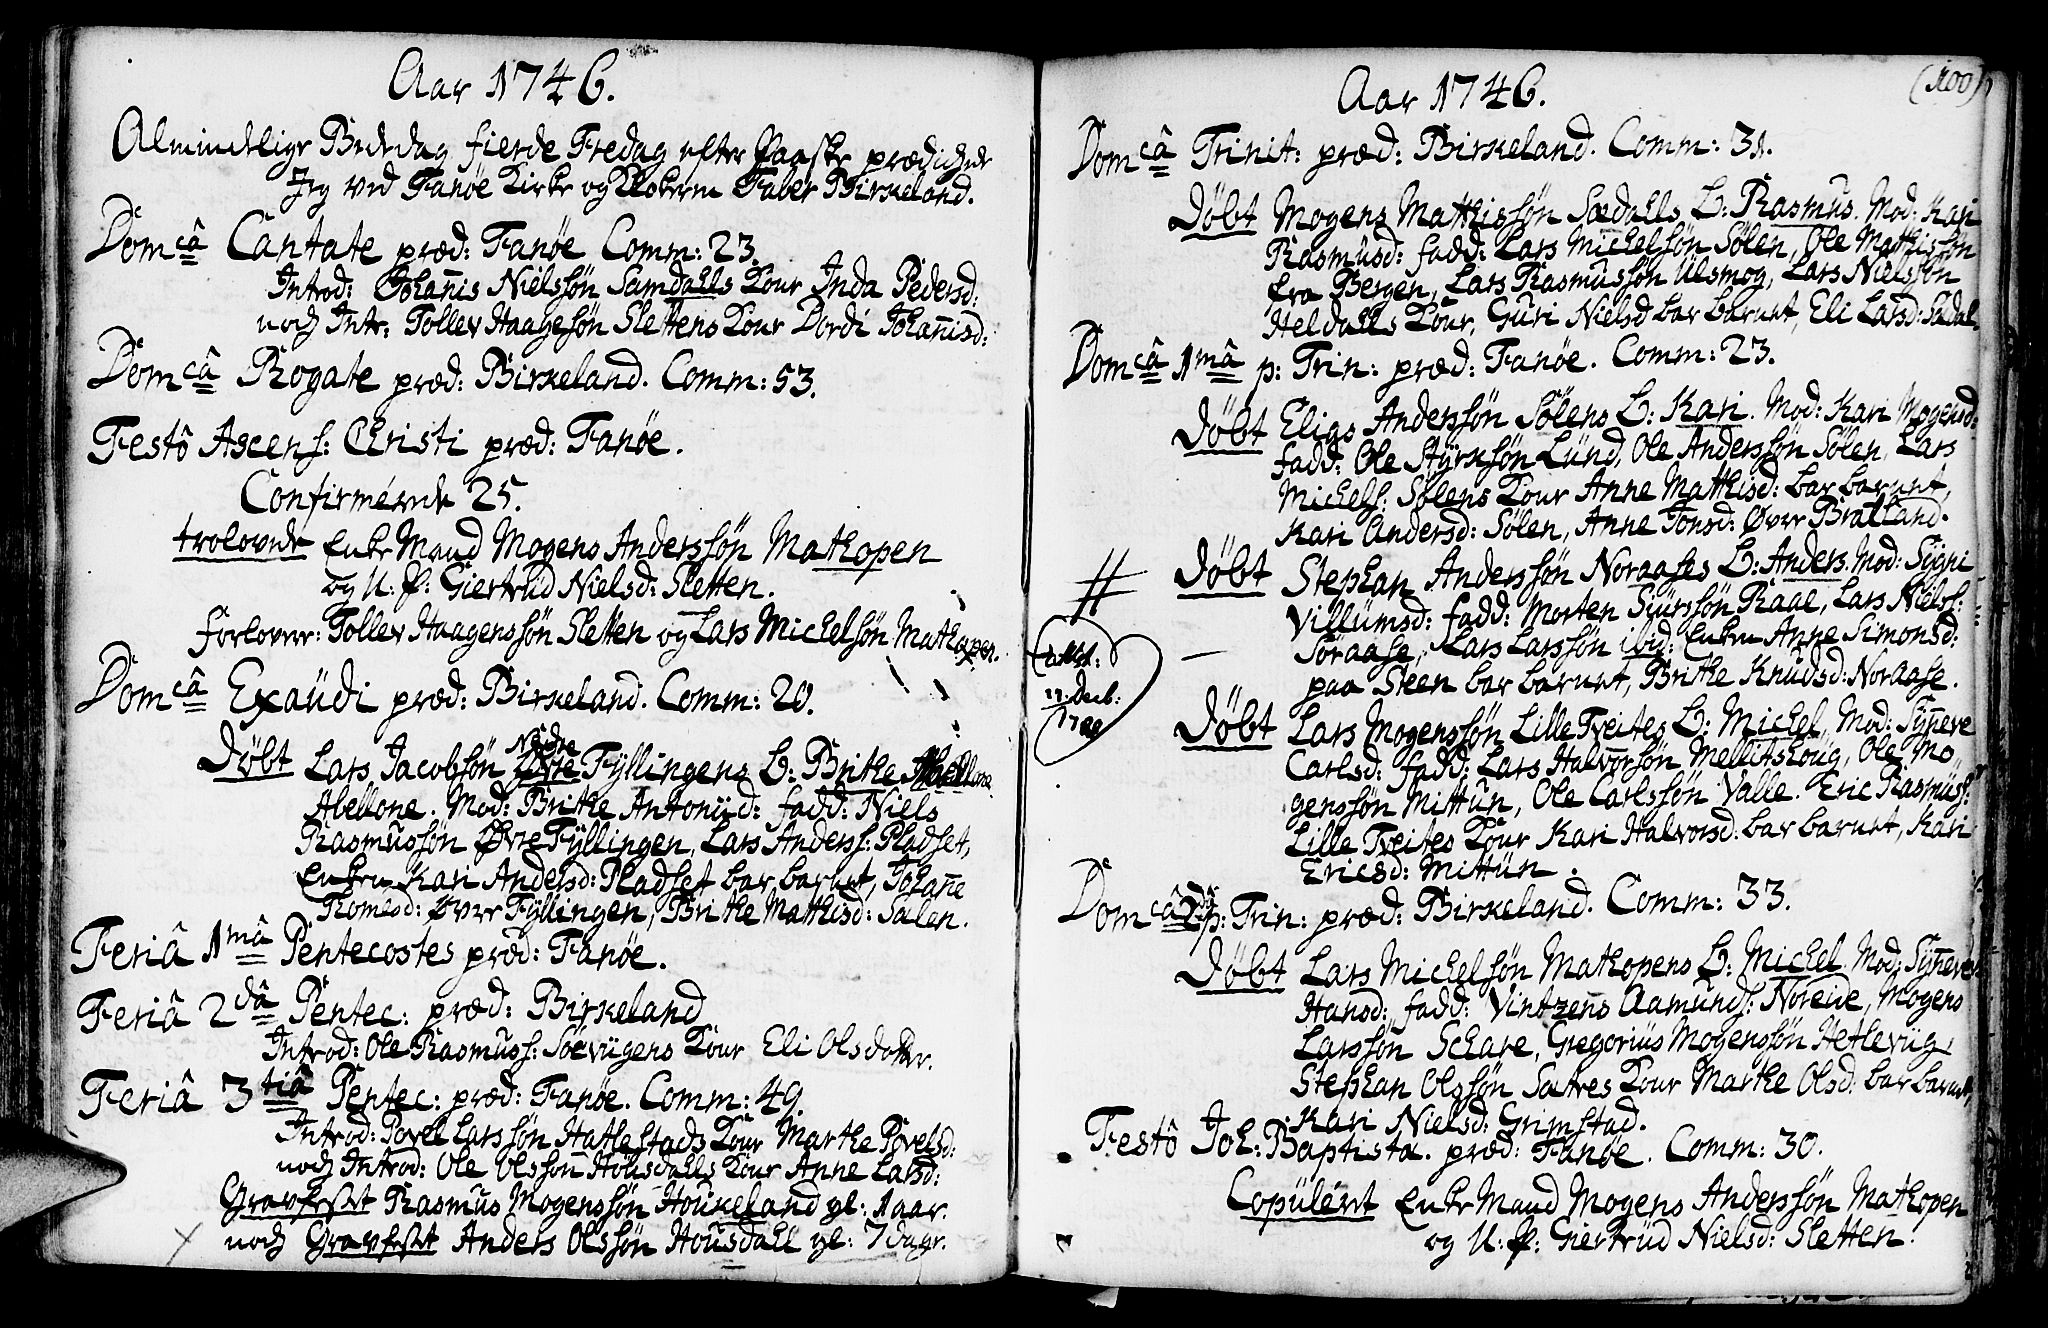 Aar 1746.
Almindelige Bededag fierde Fredag efter Paaske prædichede
Jeg ved Fanöe Kirke og Klokeren Faber Birkeland.
Domcâ Cantate præd: Fanöe Comm: 23.
Introd: Johannis Nielssön Samdalls Kour Inda Pedersd:
noch Intr: Tollev Haagesön Slettens Kour Dordi Johannisd:
Domcâ Rogate præd: Birkeland. Comm: 53.
Festô Ascens: Christi præd: Fanöe.
Confirmérede 25.
trolovede Enke Mand Mogens Anderssön Mathopen
og U: P: Giertrüd Nielsd: Sletten.
Forlover: Tollev Haagenssön Sletten og Lars Michelsön Mathopen.
Domcâ Exaüdi præd: Birkeland. Comm: 20.
Döbt Lars Jacobsön Nedre Fÿllingens B: Brithe
Abellone. Mod: Brithe Antoniid: fadd: Niels
Rasmussön Øvre Fÿllingen, Lars Anders: Pladset,
Enken Kari Andersd: Pladset bar barnet, Johanne
Thomesd: Øvre Fÿllingen, Brithe Mathisd: Sælen.
Feriâ 1mâ Pentecostes præd: Fanöe.
Feriâ 2dâ Pentec: præd: Birkeland
Introd: Ole Rasmuss: Söevügens Kour Eli Olsdotter.
Feriâ 3tiâ Pentec: præd: Fanöe. Comm: 49.
Introd: Povel Larssön Hathestads Kour Marthe Povelsd:
noch Introd: Ole Olssön Housdalls Kour Anne Larsd:
Gravfestet Rasmus Mogenssön Houkeland gl: 1 aar.
noch Gravfestet Anders Olssön Housdall gl: 7 dage.
(100)
Aar 1746.
Domcâ Trinit: præd: Birkeland. Comm: 31.
Döbt Mogens Matthissön Sædalls B: Rasmus. Mod: Kari
Rasmusd: fadd: Lars Michelsön Sölen, Ole Mathissön
fra Bergen, Lars Rasmussön Ulsmog, Lars Nielssön
Heldalls Kour, Guri Nielsd bar barnet, Eli Larsd: Sædal.
Domcâ 1mâ p: Trin: præd: Fanöe. Comm: 23.
Döbt Elias Anderssön Sölens B: Kari. Mod: Kari Mogensd:
fadd: Ole Stÿrksön Lünd, Ole Anderssön Sölen, Lars
Michels: Sölens Kour Anne Mathisd: bar barnet,
Kari Andersd: Sölen, Anne Jonsd: Øvre Bratland.
# Döbt Stephan Anderssön Noraases B: Anders. Mod: Sygni
Villümsd: fadd: Morten Siurssön Raae, Lars Niels:
Söraase, Lars Larssön ibid: Enken Anne Simonsd:
paa Steen bar barnet, Brithe Knudsd: Noraase.
Decb:
Döbt Lars Mogenssön Lille Tveites B: Michel, Mod: Sÿneve
Carlsd: fadd: Lars Halvorsön Mellitshoug, Ole Mo
genssön Mittün, Ole Carlssön Valle. Eric Rasmüs:
Lille Tveites Kour Kari Halvorsd: bar barnet, Kari
Ericsd: Mittün.
Domcâ 2dâ p: Trin: præd: Birkeland. Comm: 33.
Döbt Lars Michelsön Mathopens B: Michel Mod: Sÿneve
Hansd: fadd: Vintzens Aamunds: Noreide, Mogens
Larssön Schare, Gregorius Mogenssön Hetlevüg,
Stephan Olssön Sætres Kour Marthe Olsd: bar barnet,
Kari Nielsd: Grimstad.
Festô Joh: Baptistæ. præd: Fanöe. Comm: 30.
Copülért Enke Mand Mogens Anderssön Mathopen
og U: P: Giertrüd Nielsd: Sletten.